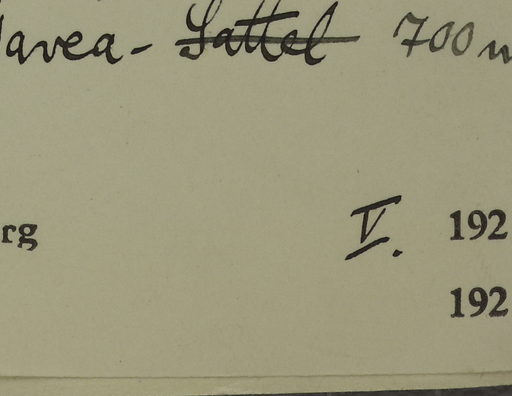 avea - Sattel 700 m
rg V. 192
192